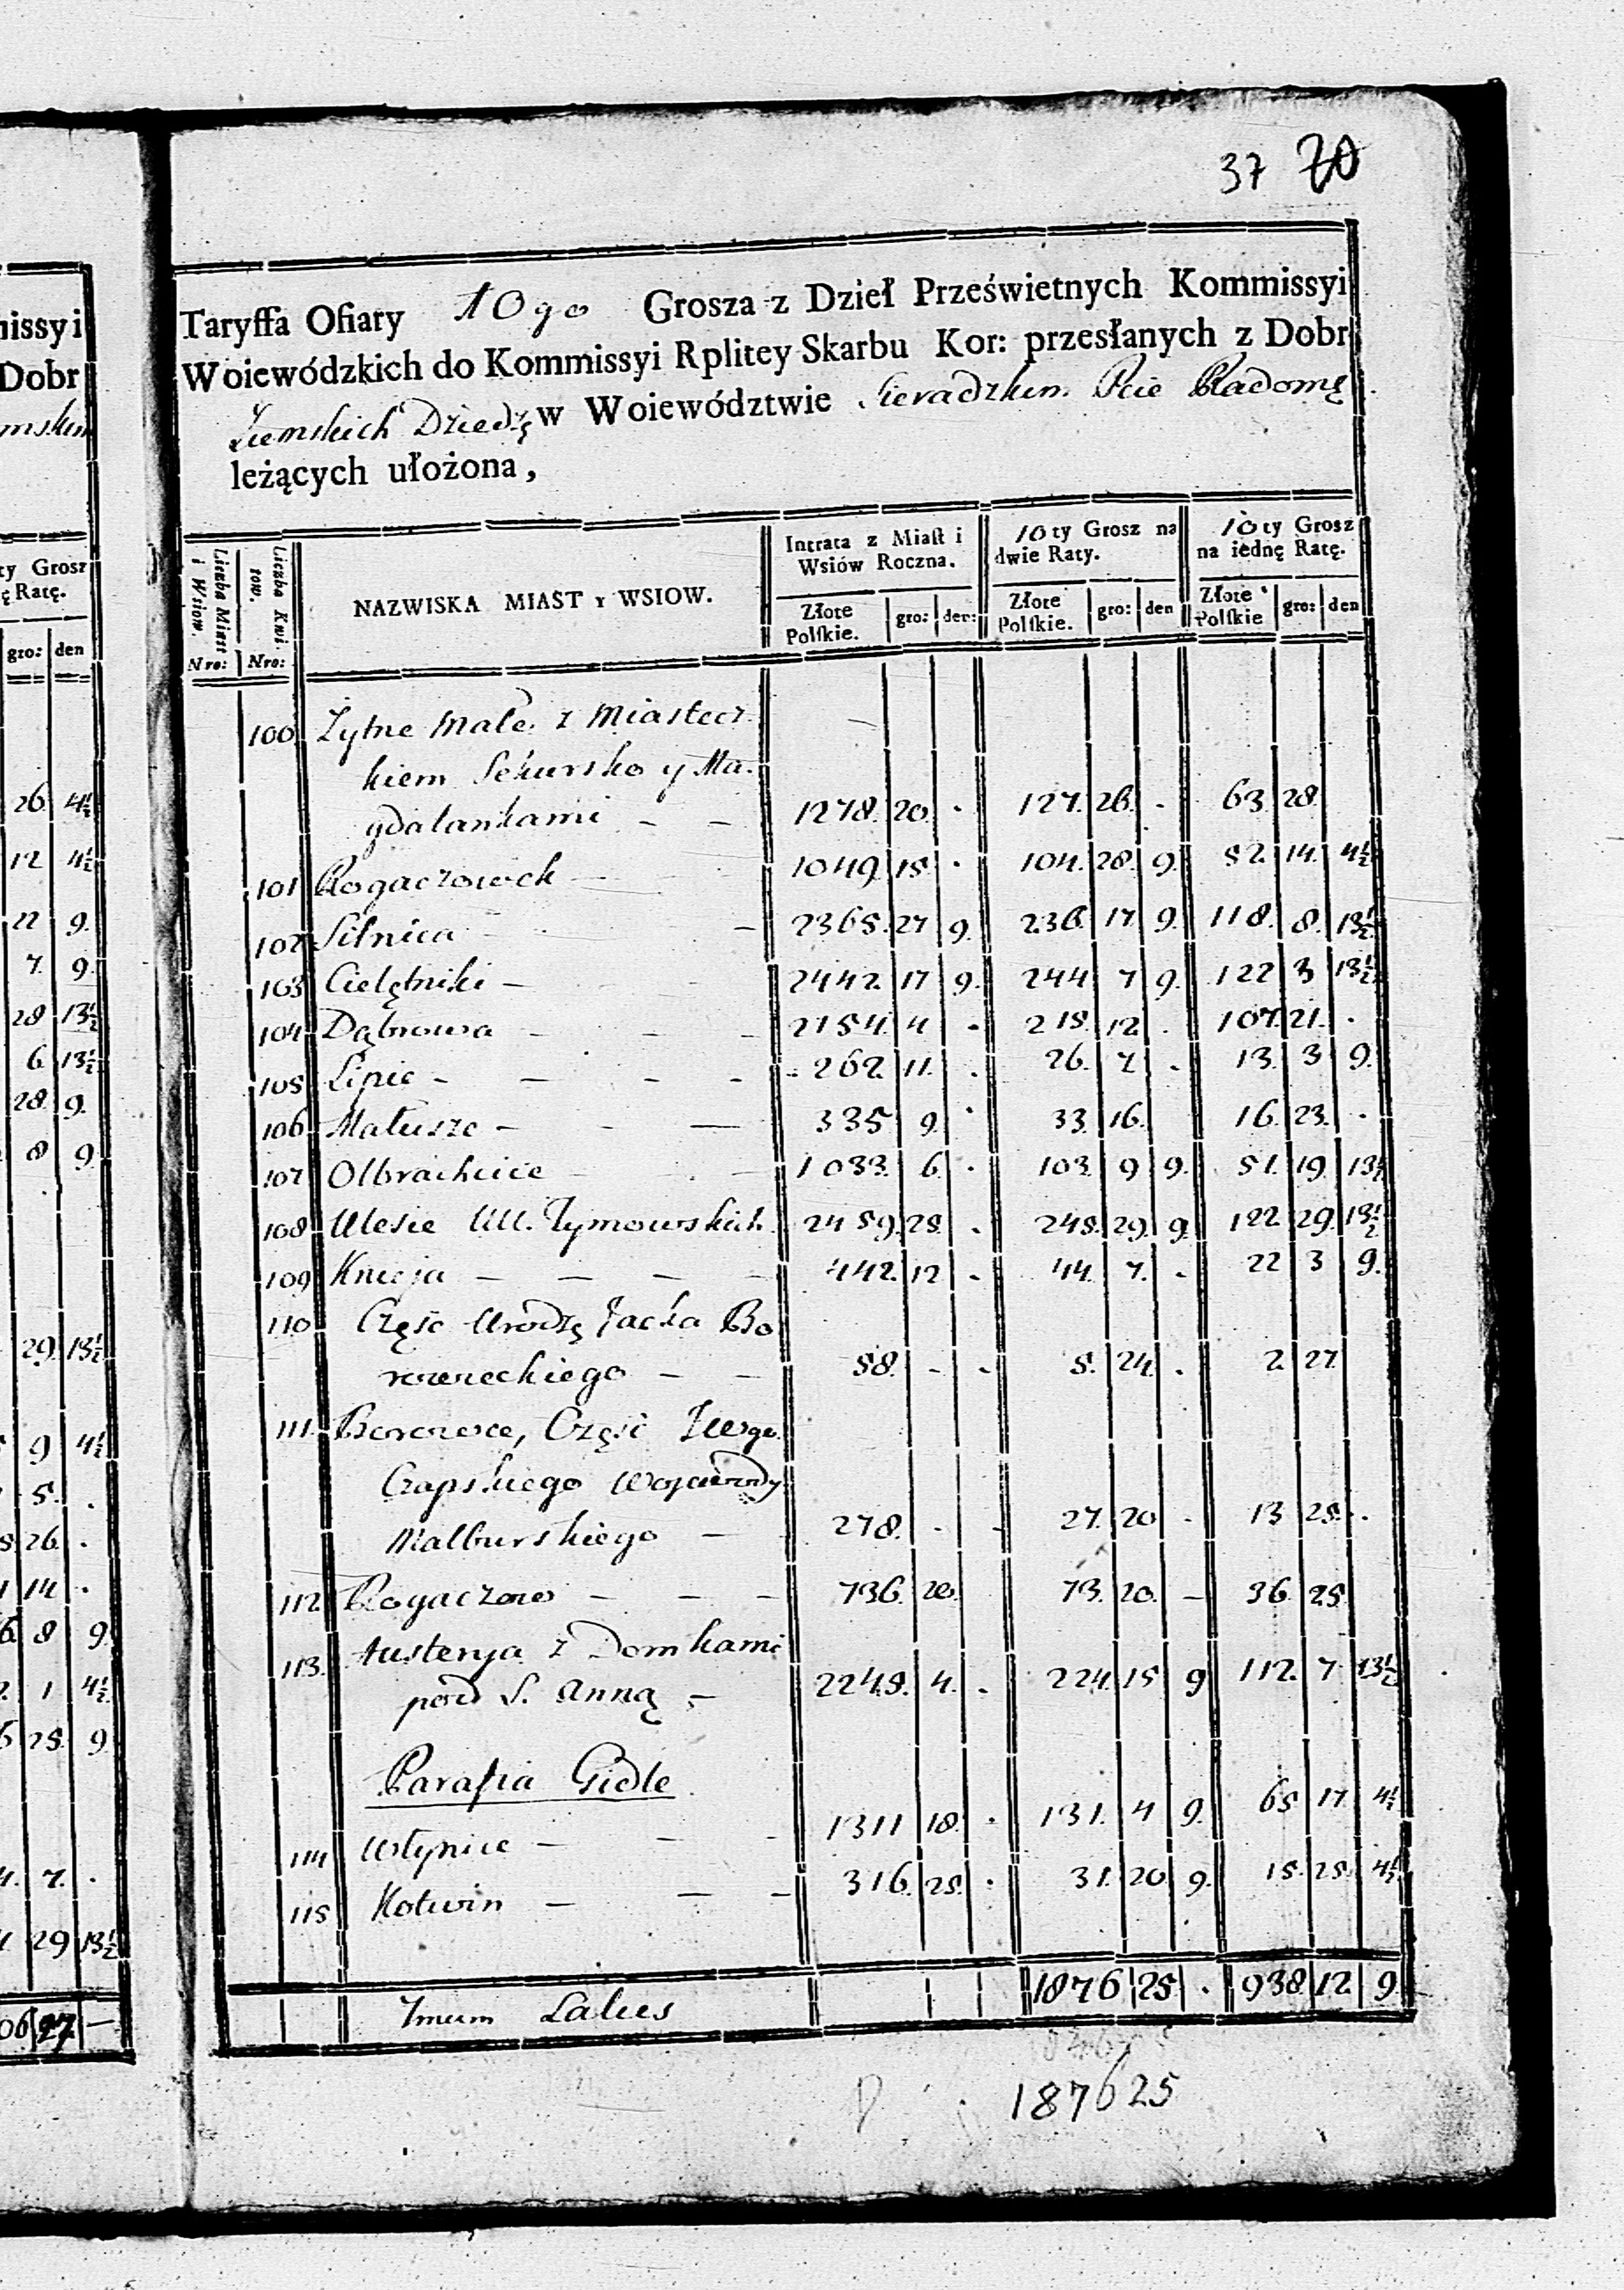 37 70
Taryffa Ofiary 10go Grosza z Dzieł Prześwietnych Kommissyi
Woiewódzkich do Kommissyi Rplitey Skarbu Kor: przesłanych z Dobr
Ziemskich Dziedz w Woiewództwie Sieradzkim Pcie Radoms
leżących ułożona,
Liczba Miast i Wsiow. Nro: Liczba Kwitow. Nro: NAZWISKA MIAST y WSIOW. Intrata z Miast i Wsiów Roczna. Złote Polskie. gro: den: 10ty Grosz na dwie Raty. Złote Polskie. gro: den 10ty Grosz na iednę Ratę. Złote Polskie gro: den
100 Żytne Małe z Miastecz
kiem Sekursko y Ma.
gdalankami — — 1278. 20. . 127. 26. . 63. 28.
101 Rogaczowek — 1049 15. . 104. 28. 9. 52. 14. 4½
102 Silnica — — 2365. 27 9. 236. 17 9. 118. 8. 13½
103 Cielętniki — 2442. 17 9. 244 7 9. 122 3 13½
104 Dąbrowa — — — 2154. 4 . 215. 12 . 107. 21. .
105 Lipie — — — — 262. 11. . 26. 7. . 13. 3 9.
106 Małusze — — — 335 9. . 33. 16. 16. 23. .
107 Olbrachcice — 1033. 6. . 103. 9 9. 51. 19. 13½
108 Ulesie UU. Tymowskich 2459. 25. . 245. 29. 9. 122. 29. 13½
109 Knieja — — — — 442. 12 . 44. 7. . 22 3 9.
110 Część Urodz Jacka Bo
rzewieckiego — — 58. - - 5. 24. . 2. 27.
111. Borzerow, Część
Czapskiego Wojewody
Malburskiego — 278. . - 27. 20 - 13 25. .
112. Rogaczowo — — — 736. 20. 73. 20. — 36. 25
113. Austerya z Domkami
pod S. Anną — 2245. 4. . 224. 15 9 112. 7 13½
Parafia Gidle
114 Włynice — — - 1311 18. . 131. 4 9. 65 17. 4½
115 Kotwin — — — 316. 25. . 31. 20 9. 15. 25. 4½
Latus 1876 25 . 938. 12. 9
1876 25
issyi
Dobr
mskim
ty Grosz
ę Ratę.
gro: den
26 4½
12 4½
22 9.
7. 9.
28 13½
6 13½
28. 9.
8 9
29. 13½
9 4½
5. .
26. .
14 .
8 9.
1 4½
25. 9
7. .
29 13½
06 27 —